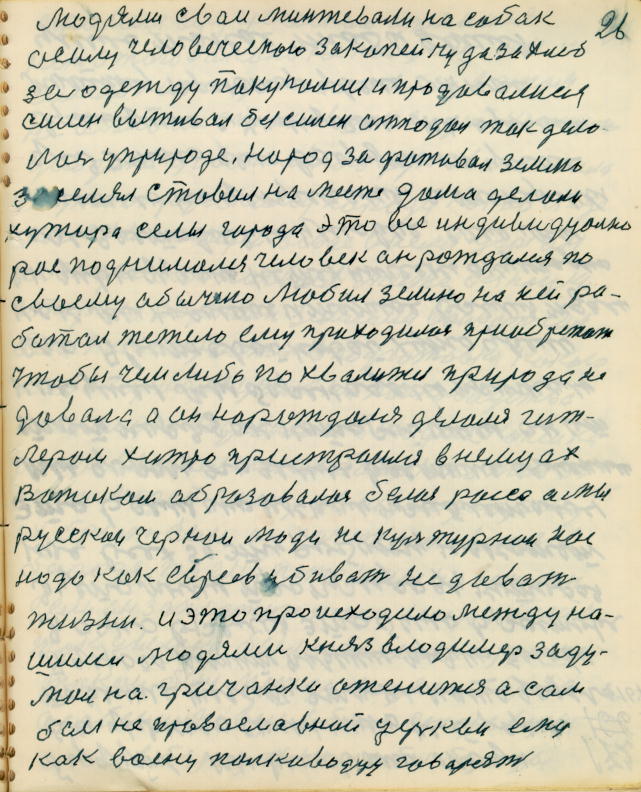 26
людями сваи минтевали на собак
осилу человеческою закопейку да за хлеб
за одежду покупалис и продавалися
силен выживал бессилен отходил так дело-
лоя уприроде. народ за фатовал землю
заселял ставил на месте дома делали
хутора селы города это все индивидуално
рас поднимался человек ан рождался по
своему обычно любил землю на ней ра-
ботал тежело ему приходилоя приобретат
чтобы чем либо похвалится природа не
довала а он нарождался делоля гит-
лером хитро пристроился в немцах
Вотоком образовалоя белая расса а мы
русской черной люди не културной нос
надо как евреев убиват не дават
жизни. и это происходило между на-
шими людями князь владимер заду-
мал на гричанки оженится а сам
был не православной церкви ему
как воену полководцу говарят